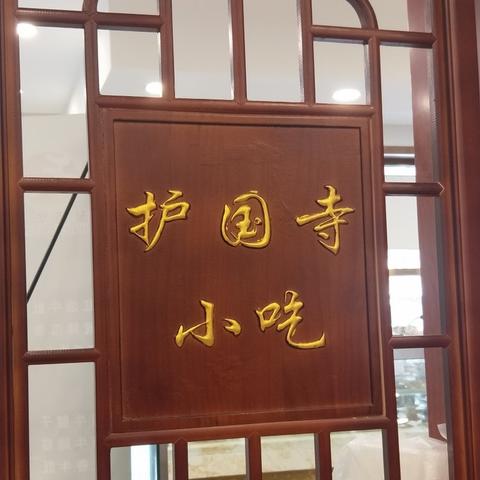 护国寺
小吃